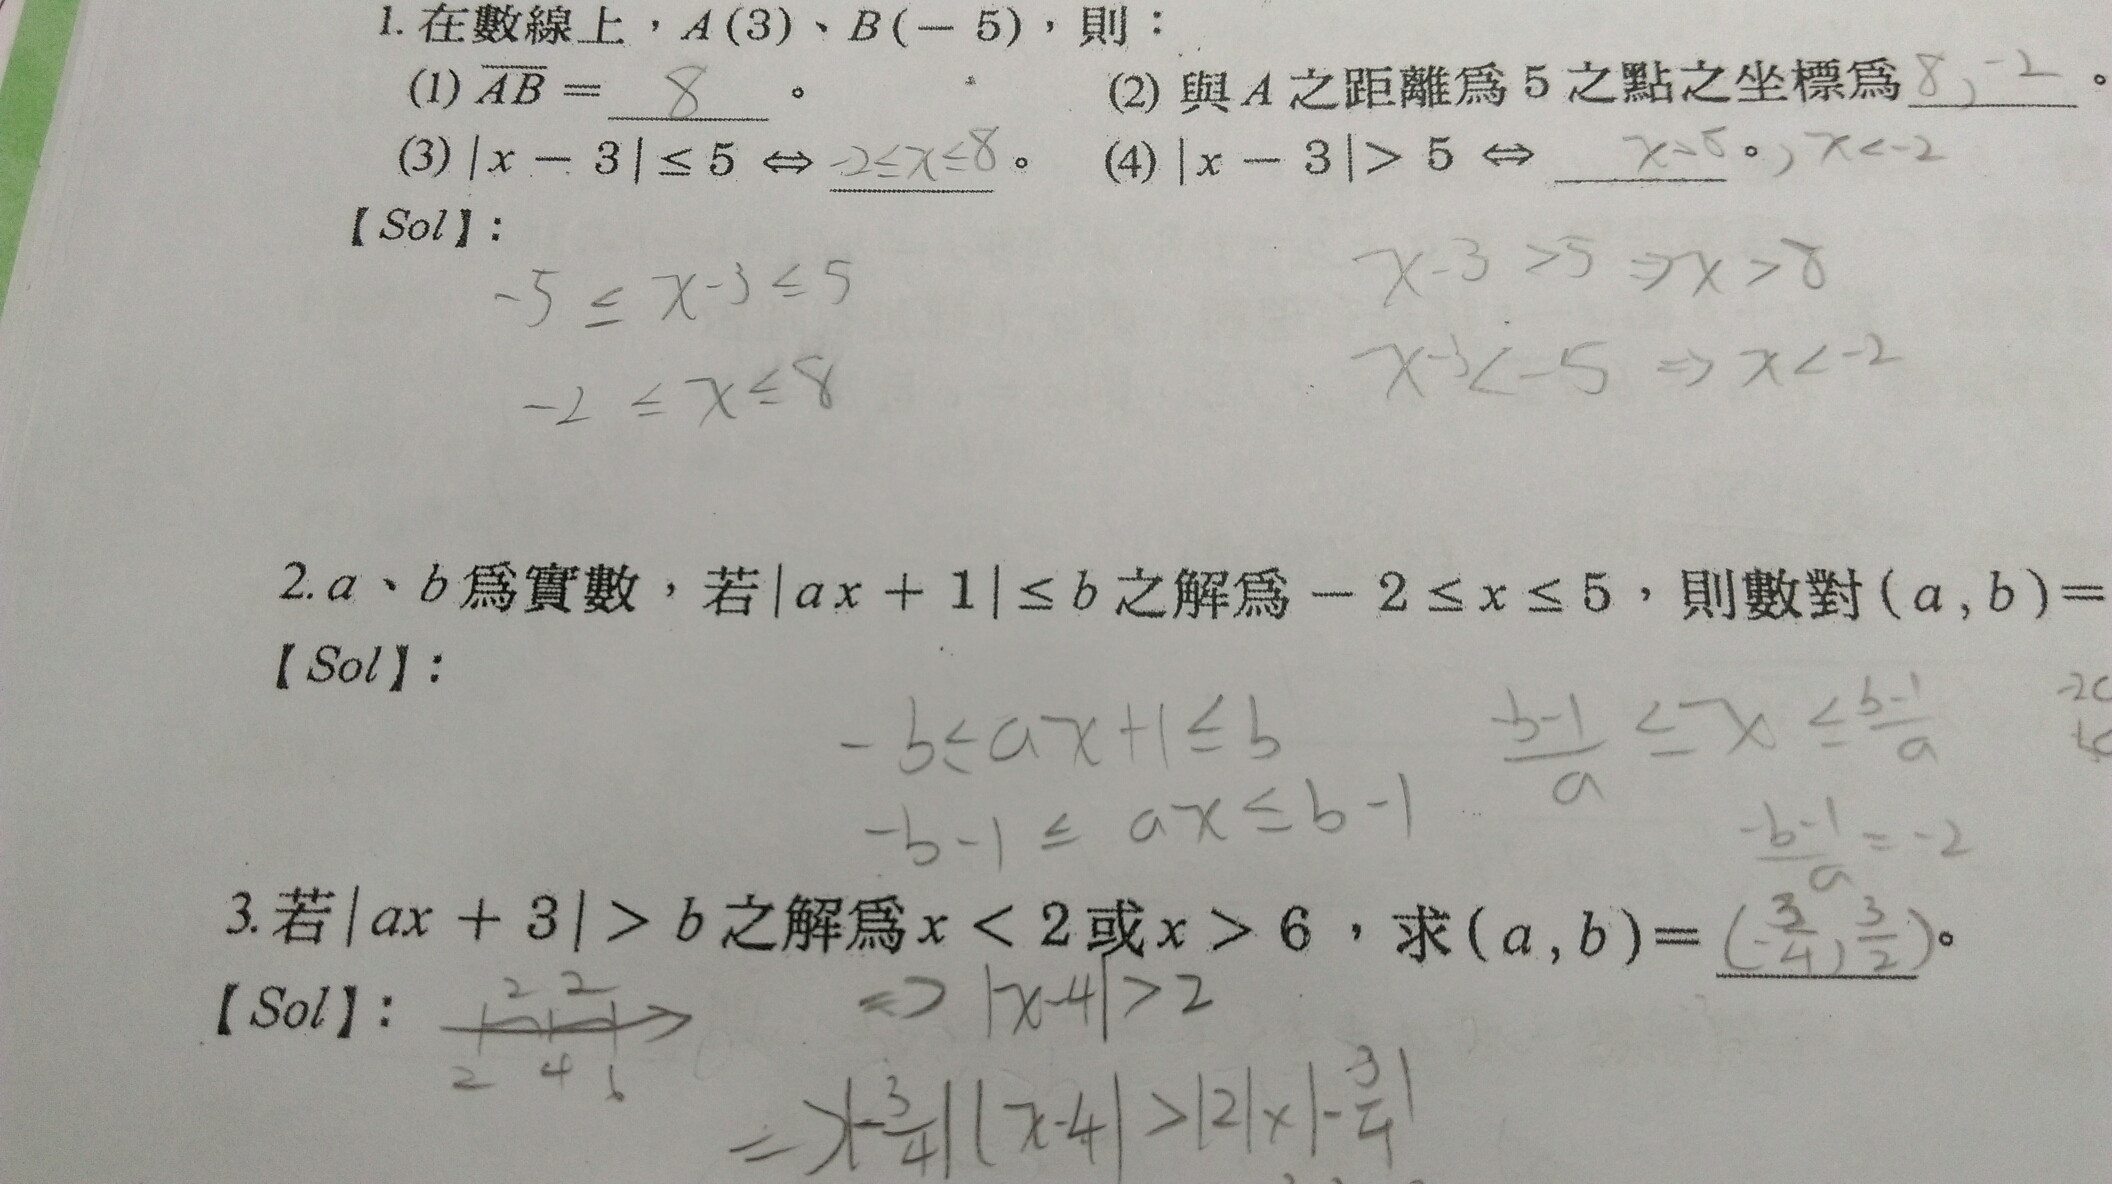 1. 在數線上，A(3)、B(－5)，則：
(1) AB = 8 。 (2) 與A之距離爲5之點之坐標爲 8, -2 。
(3) |x － 3| ≤ 5 ⇔ -2≤x≤8 。 (4) |x － 3| > 5 ⇔ x>8 。, x<-2
【Sol】：
-5 ≤ x-3 ≤ 5 x-3 >5 ⇒ x >8
-2 ≤ x ≤ 8 x-3<-5 ⇒ x<-2
2. a、b爲實數，若|ax + 1| ≤ b之解爲－2 ≤ x ≤ 5，則數對(a, b) =
【Sol】：
-b≤ax+1≤b -b-1/a ≤ x ≤ b-1/a
-b-1 ≤ ax ≤ b-1
-b-1/a = -2
3. 若|ax + 3| > b之解爲x < 2或x > 6，求(a, b) = (-3/4, 3/2)。
【Sol】： 2 2 ⇒ |x-4|>2
2 4 6
⇒|-3/4||x-4|>|2|×|-3/4|